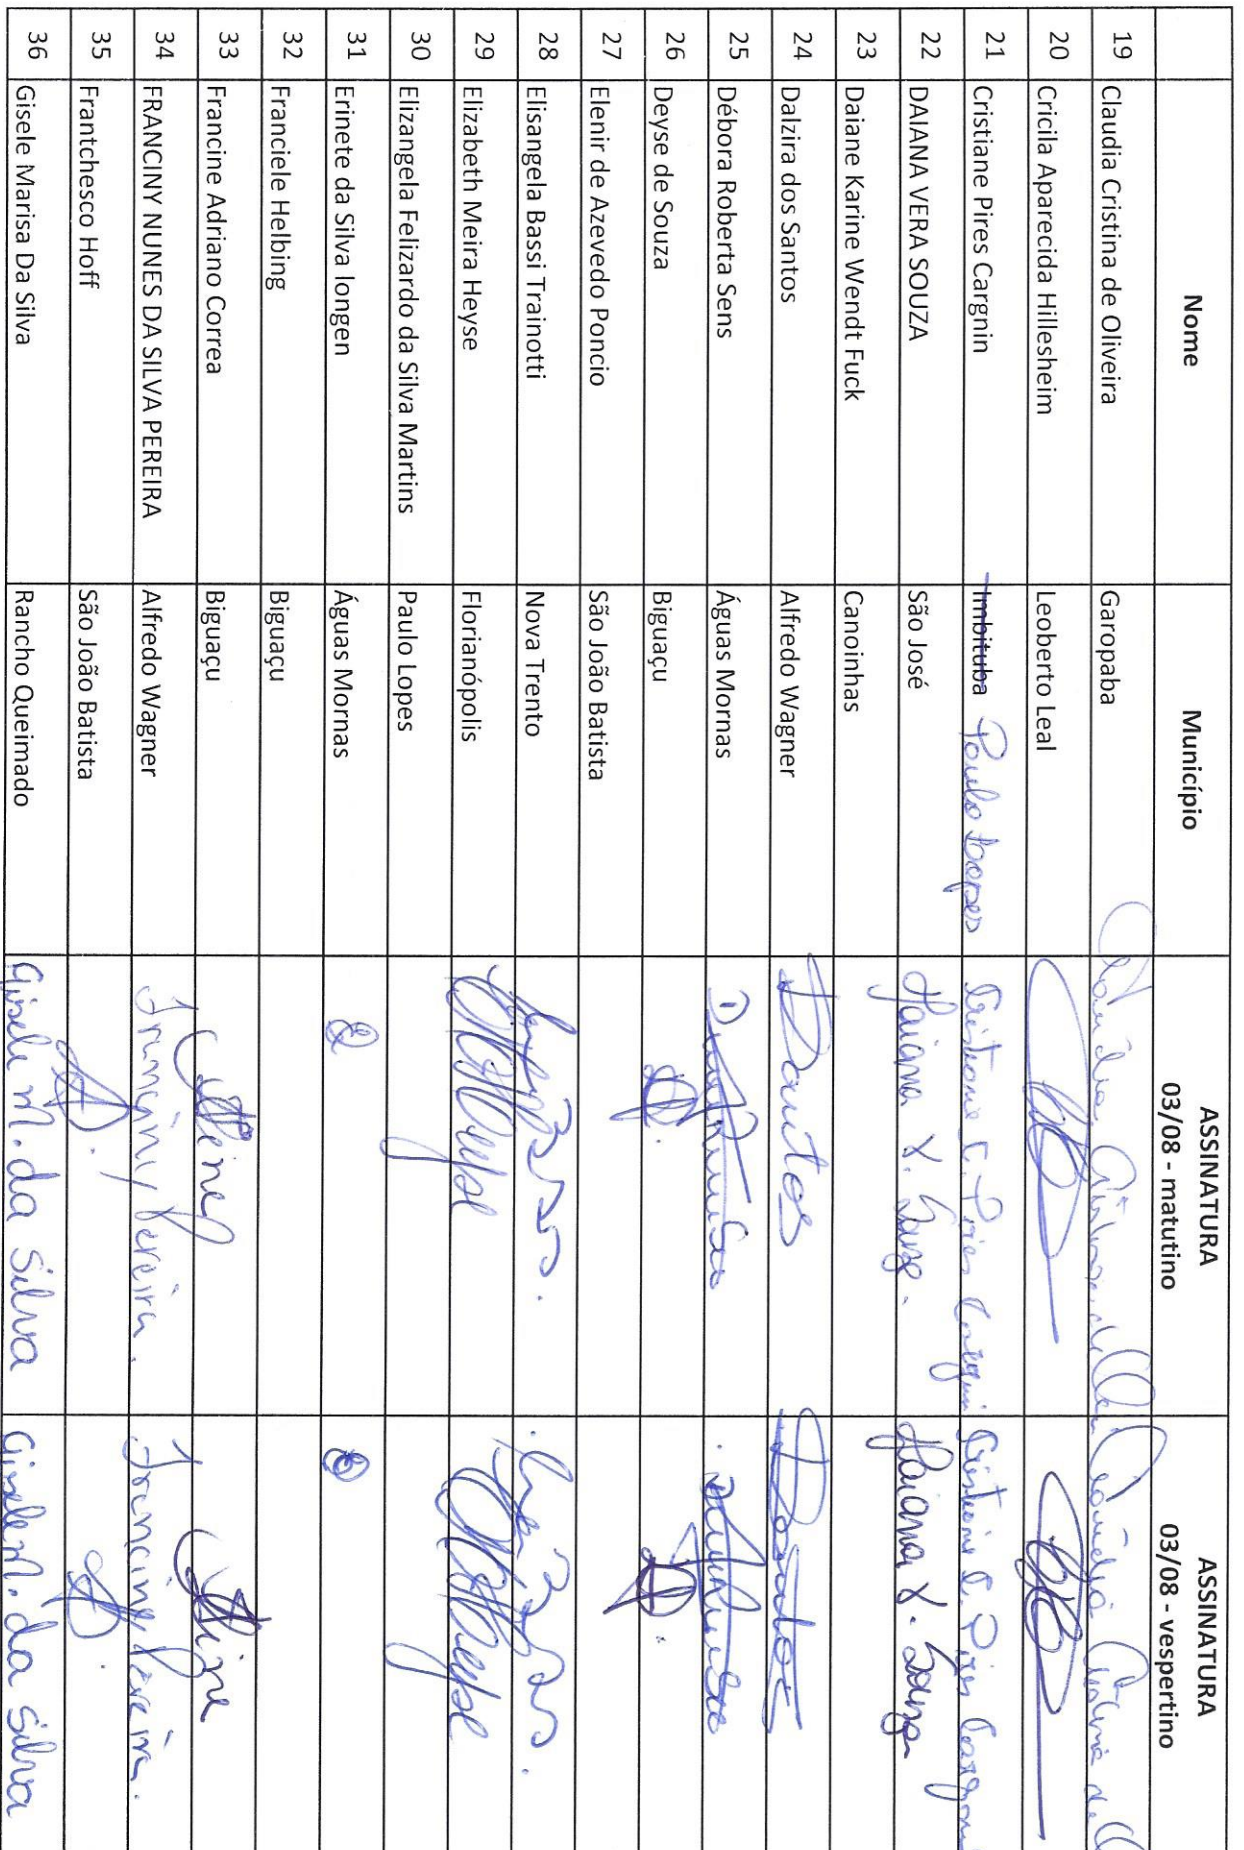 Nome Município ASSINATURA 03/08 - matutino ASSINATURA 03/08 - vespertino
19 Claudia Cristina de Oliveira Garopaba Claudia Cristina Claudia Cristina
20 Cricila Aparecida Hillesheim Leoberto Leal
21 Cristiane Pires Cargnin Imbituba Paulo Lopes Cristiane C. Pires Cargnin Cristiane C. Pires Cargnin
22 DAIANA VERA SOUZA São José Daiana V. Souza. Daiana V. Souza
23 Daiane Karine Wendt Fuck Canoinhas
24 Dalzira dos Santos Alfredo Wagner DSantos DSantos
25 Débora Roberta Sens Águas Mornas
26 Deyse de Souza Biguaçu
27 Elenir de Azevedo Poncio São João Batista
28 Elisangela Bassi Trainotti Nova Trento
29 Elizabeth Meira Heyse Florianópolis
30 Elizangela Felizardo da Silva Martins Paulo Lopes
31 Erinete da Silva longen Águas Mornas
32 Franciele Helbing Biguaçu
33 Francine Adriano Correa Biguaçu
34 FRANCINY NUNES DA SILVA PEREIRA Alfredo Wagner Franciny Pereira. Franciny Pereira.
35 Frantchesco Hoff São João Batista
36 Gisele Marisa Da Silva Rancho Queimado Gisele M. da Silva Gisele M. da Silva